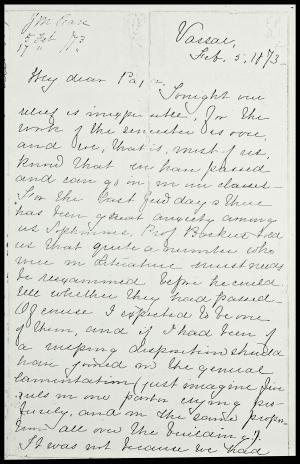 Vassar,
Feb. 5, 1873.
My dear Pa,
Tonight our
relief is inexpressible, for the
work of the semester is over,
and we, that is, most of us,
know that we have passed
and can go on in our classes.
For the last few days there
has been great anxiety among
us Sophomores. Prof. Backus told
us that quite a number who
were in Literature must needs
be reexamined before he could
tell whether they had passed.
Of course I expected to be one
of them, and if I had been of
a weeping disposition should
have joined in the general
lamentation (just imagine five
girls in one parlor crying pro-
fusely, and in the same propor-
tion all over the building).
It was not because we had